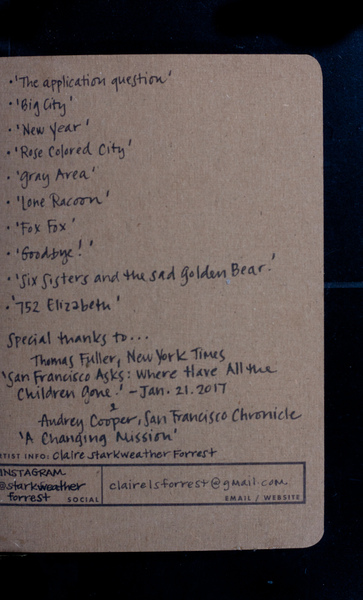 • 'The application question'
• 'Big City'
• 'New Year'
• 'Rose Colored City'
• 'Gray Area'
• 'Lone Racoon'
• 'Fox Fox'
• 'Goodbye!'
• 'Six Sisters and the Sad Golden Bear.'
• '752 Elizabeth'
Special thanks to...
Thomas Fuller, New York Times
'San Francisco Asks: Where Have All the
Children Gone.' - Jan. 21. 2017
&
Audrey Cooper, San Francisco Chronicle
'A Changing Mission'
RTIST INFO: Claire Starkweather Forrest
INSTAGRAM
@starkweather
forrest SOCIAL
clairelsforrest@gmail.com
EMAIL / WEBSITE